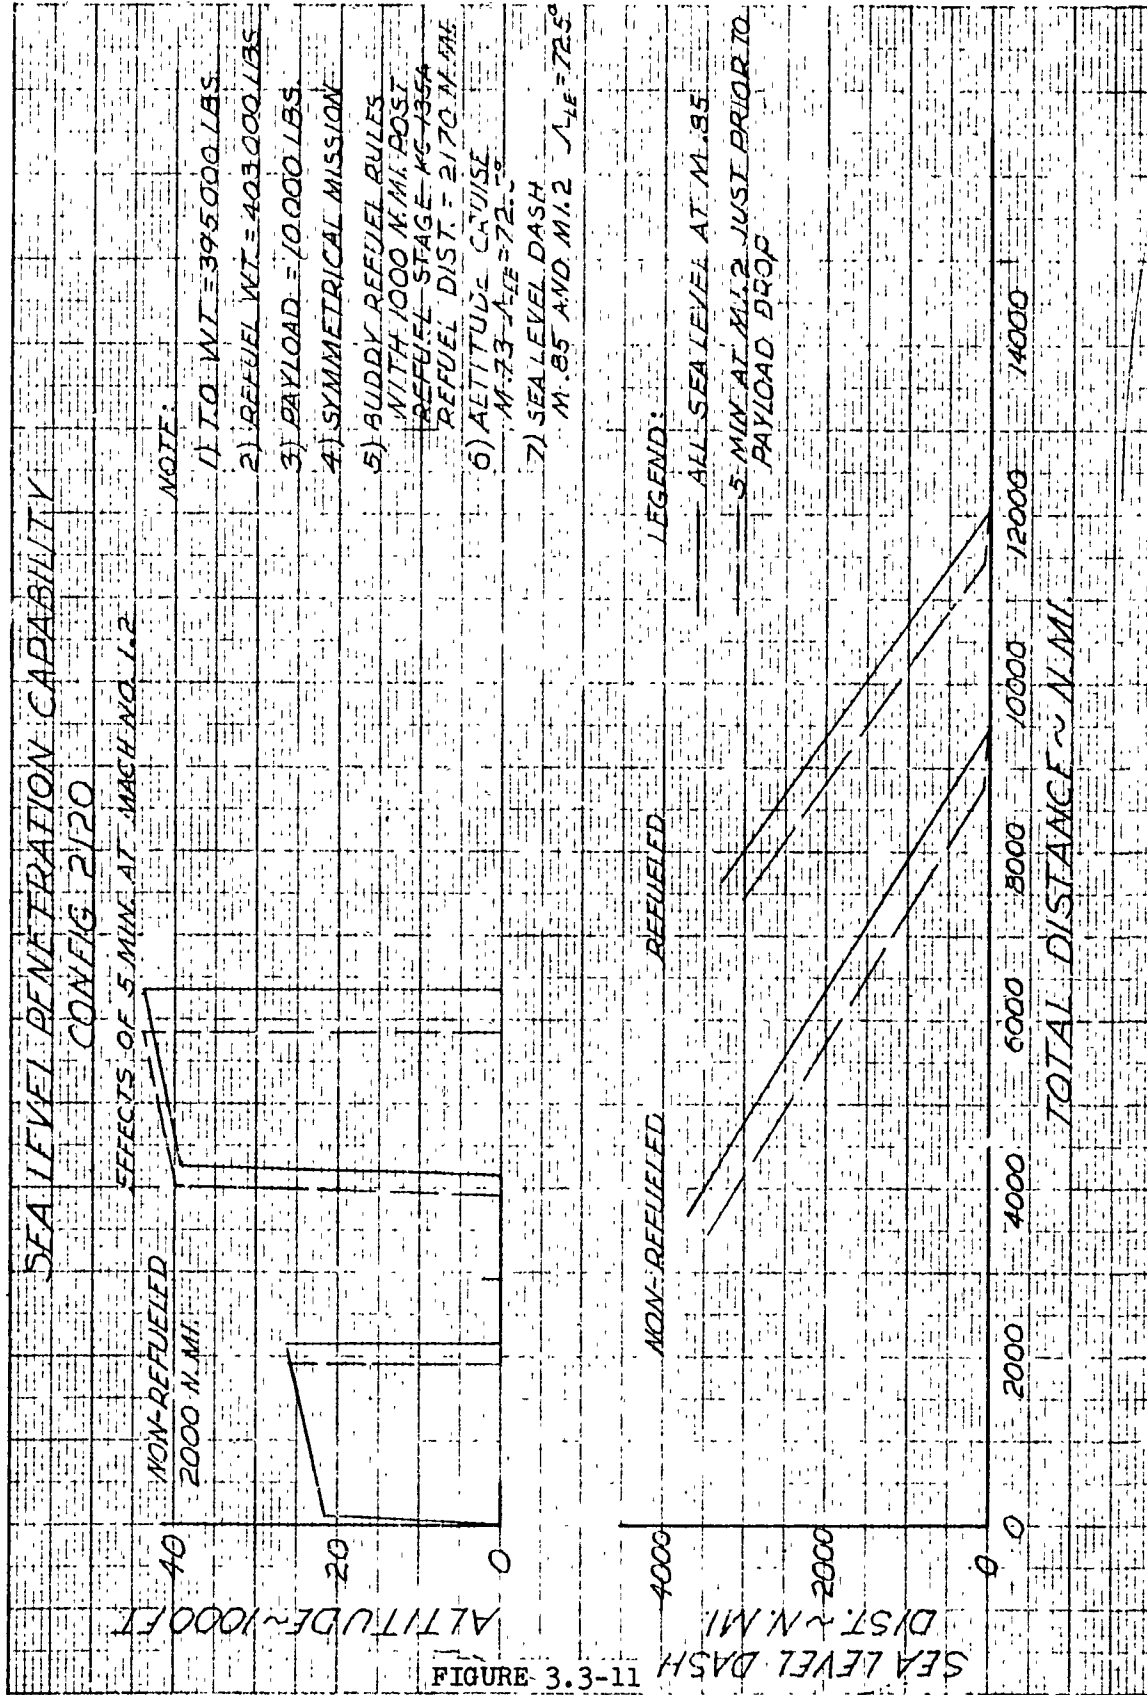 SEA LEVEL PENETRATION CAPABILITY
CONFIG 2120
EFFECTS OF 5 MIN. AT MACH NO. 1.2
NON-REFUELED
2000 N.MI.
NOTE:
1) T.O WT = 395000 LBS.
2) REFUEL WT. = 403000 LBS
3) PAYLOAD = 10000 LBS.
4) SYMMETRICAL MISSION
5) BUDDY REFUEL RULES
WITH 1000 N.MI. POST
REFUEL STAGE KC-135A
REFUEL DIST. = 2170 N.MI.
6) ALTITUDE CRUISE
M.73 Λ LE =
7) SEA LEVEL DASH
M.85 AND M1.2 Λ LE = 72.5°
40
20
0
ALTITUDE ~ 1000 FT
LEGEND:
ALL SEA LEVEL AT M.85
5 MIN. AT M1.2 JUST PRIOR TO
PAYLOAD DROP
NON-REFUELED
REFUELED
4000
2000
0
SEA LEVEL DASH
DIST. ~ N.MI
0 2000 4000 6000 8000 10000 12000 14000
TOTAL DISTANCE ~ N.MI.
FIGURE 3.3-11